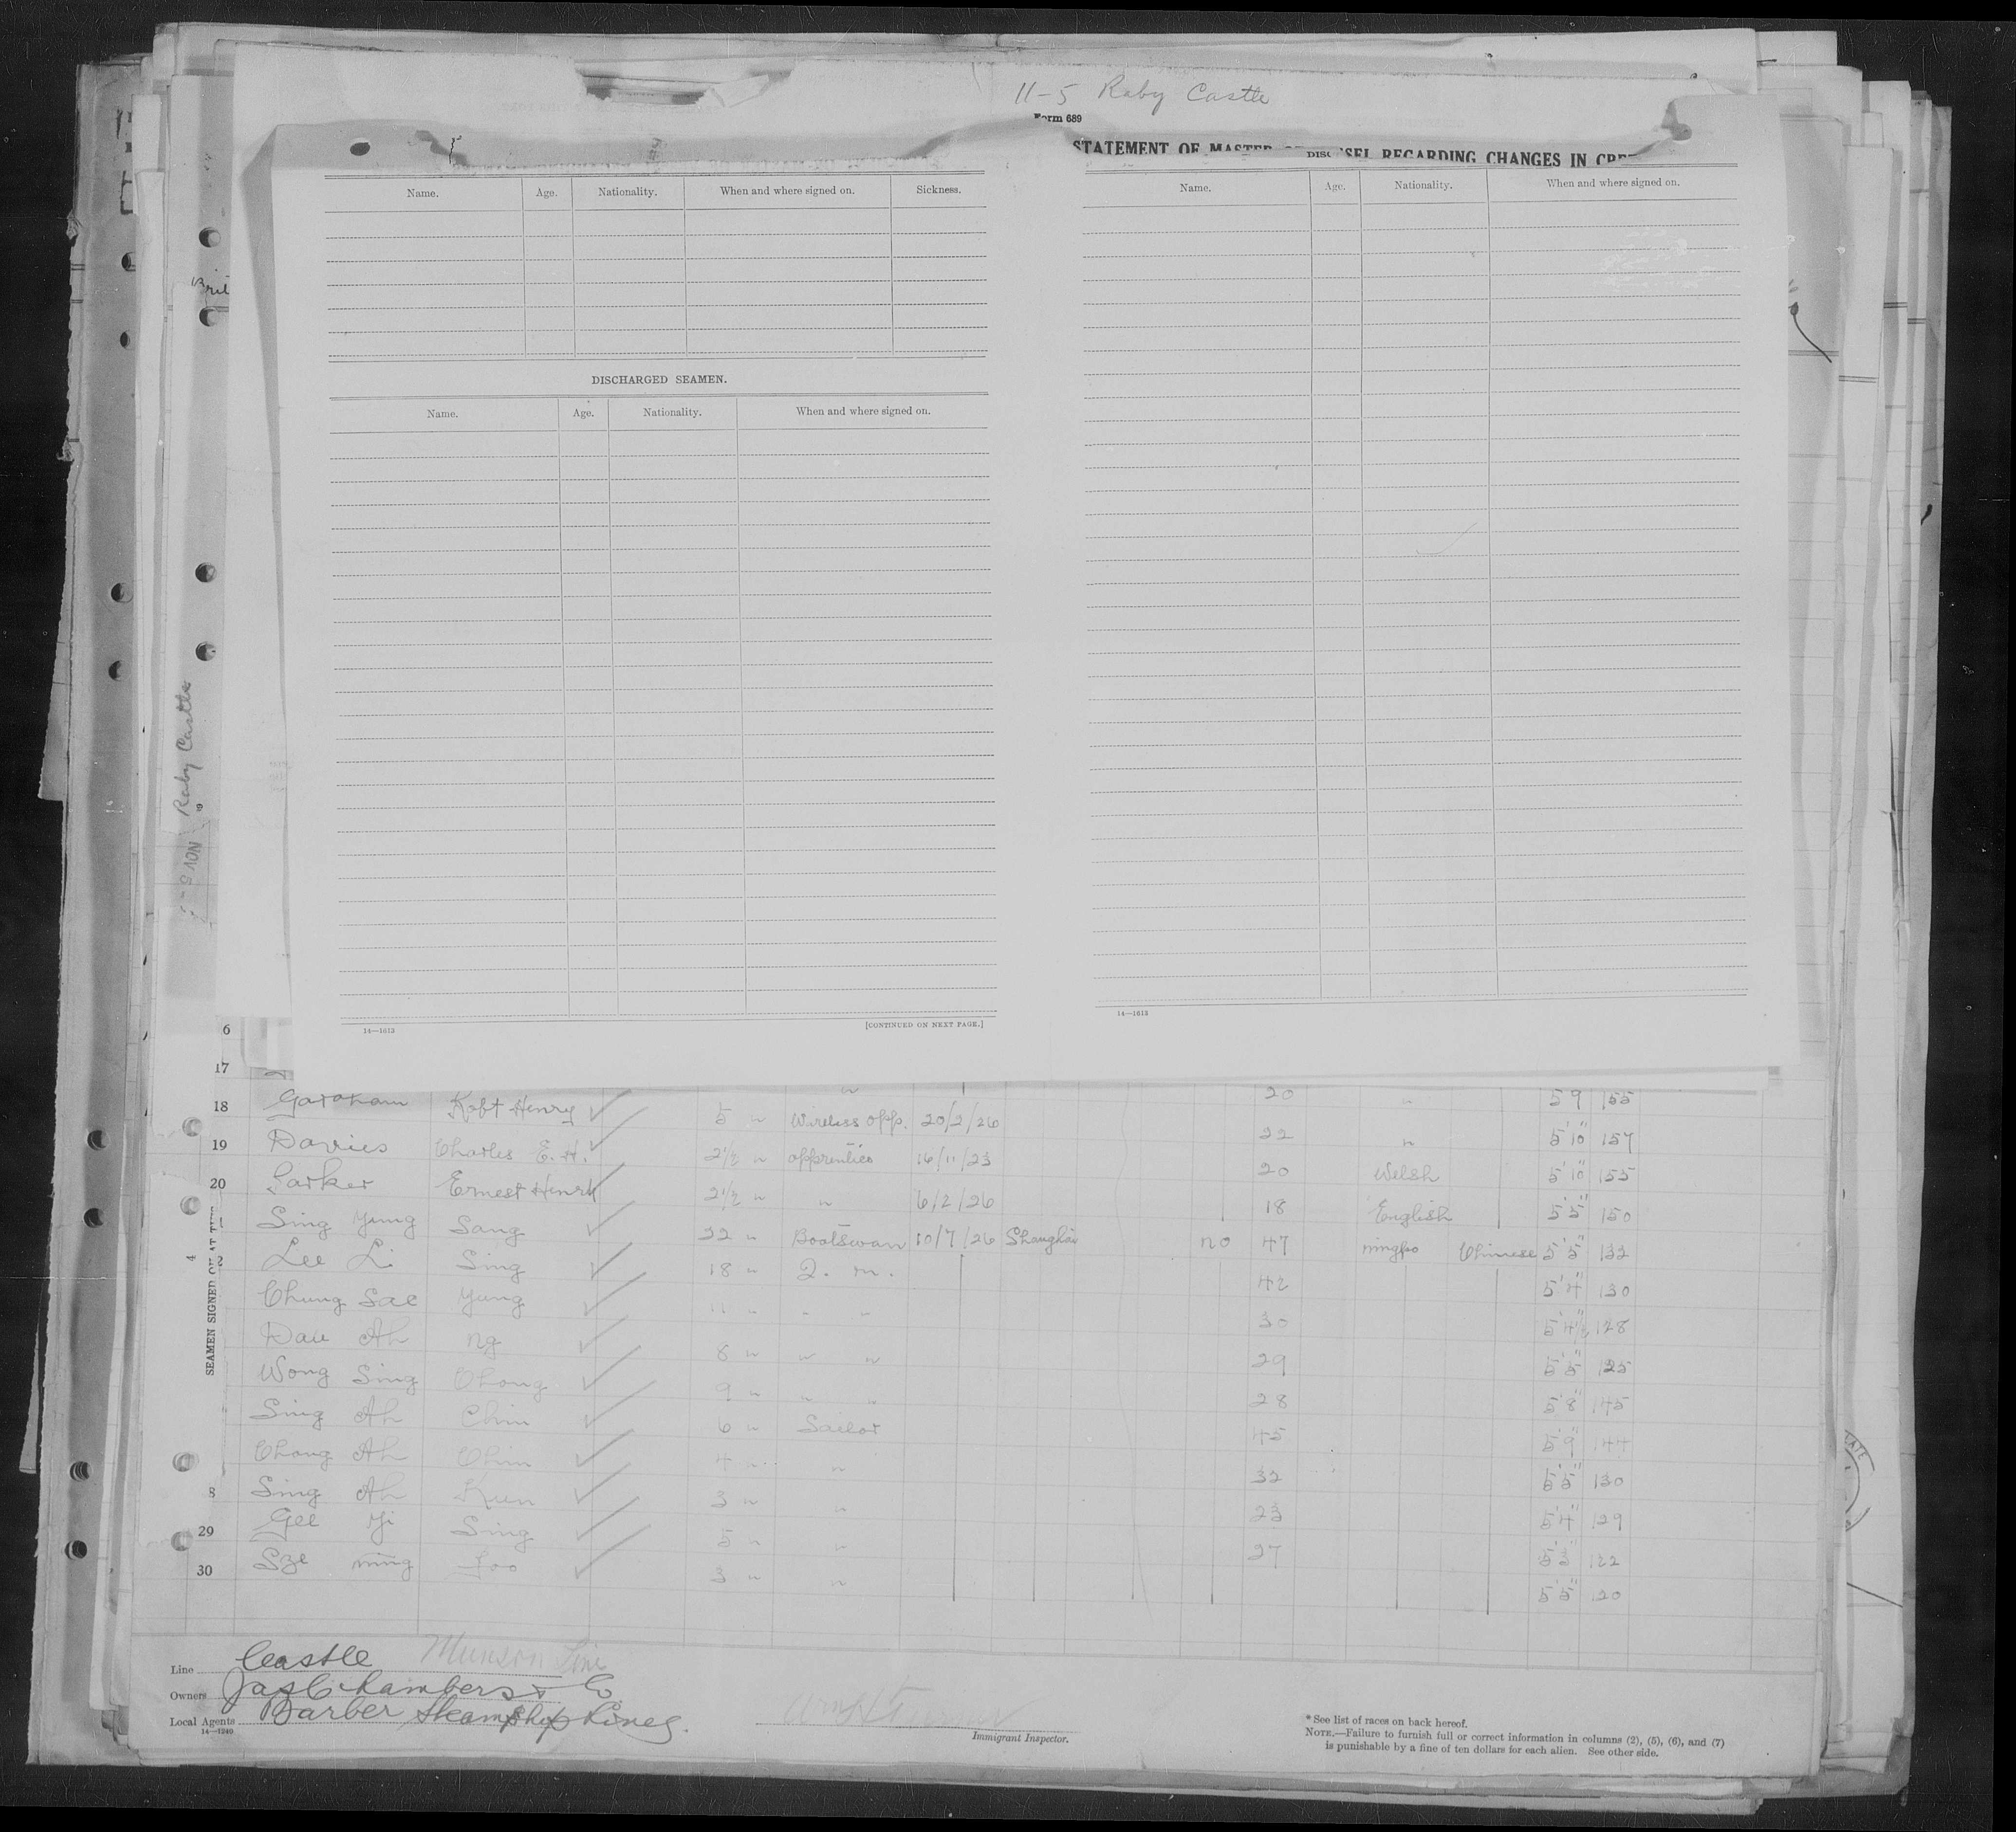 11-5 Raby Castle
Form 689
STATEMENT OF MASTER SSEL REGARDING CHANGES IN CRE
Name. Age. Nationality. When and where signed on. Sickness.
DISCHARGED SEAMEN.
Name. Age. Nationality. When and where signed on.
14—1613 [CONTINUED ON NEXT PAGE.]
Name. Age. Nationality. When and where signed on.
14—1613
Raby Castle
NOV 8
SEAMEN SIGNED ON AT
6
17
18 Robt Henry ✓ 5 " Wireless opp. 20/2/26 20 " 5 9 155
19 Davies Charles E. H. ✓ 2½ " apprentice 16/11/23 22 " 5'10" 157
20 Parker Ernest Henry ✓ 2½ " " 6/2/26 20 Welsh 5'10" 155
18 English 5'5" 150
Sing Yung Sang ✓ 22 " Boatswan 10/7/26 Shanghai no 47 ningpo Chinese 5'5" 132
Lee Li Sing ✓ 18 " Q. m. 42 5'4" 130
Chung Sae Yung ✓ 11 " " " 30 5'4½ 128
Dau Ah Ng ✓ 8 " " " 29 5'5" 125
Wong Sing Chong ✓ 9 " " " 28 5'8" 145
Sing Ah Chin ✓ 6 " Sailor 45 5'9" 144
Chong Ah Chin ✓ 4 " " 32 5'5" 130
8 Sing Ah Kun ✓ 3 " " 23 5'4" 129
29 Gee Yi Sing ✓ 5 " " 27 5'3" 122
30 Sze ning Foo ✓ 3 " " 5'5" 120
Line Castle Munson Line
Owners Jas Chambers & Co
Local Agents Barber Steamship Lines.
14—1240
Immigrant Inspector.
* See list of races on back hereof.
NOTE.—Failure to furnish full or correct information in columns (2), (5), (6), and (7)
is punishable by a fine of ten dollars for each alien. See other side.